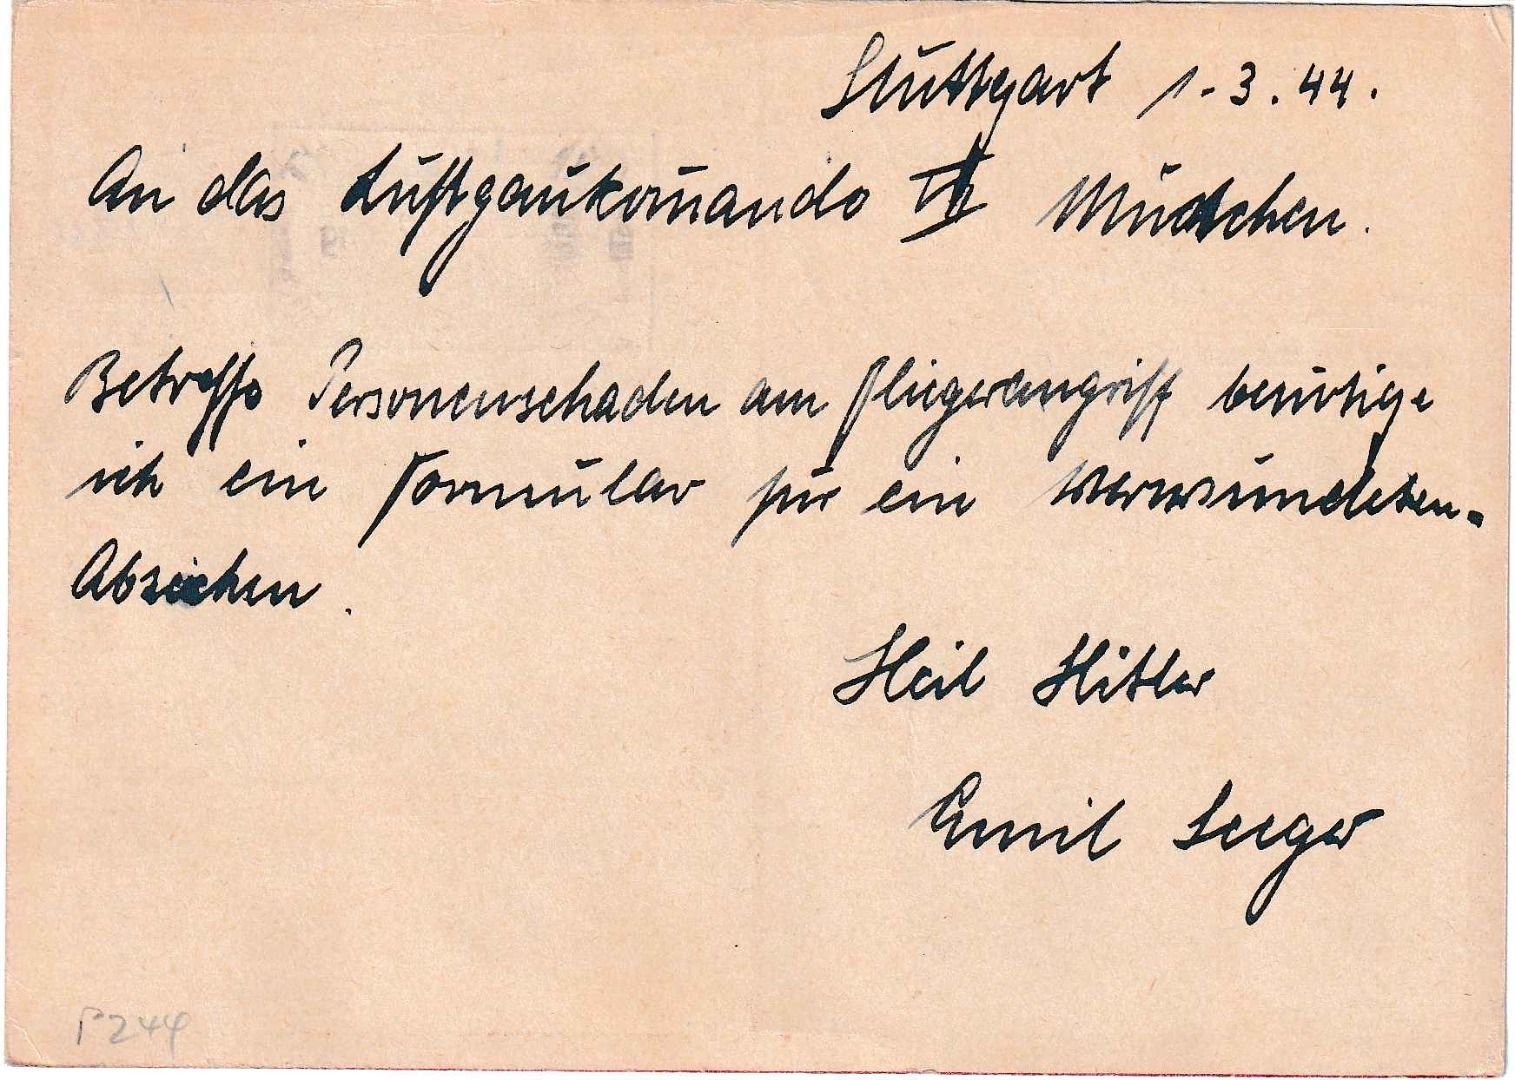 Stuttgart 1.3.44.
An das Luftgaukom̄ando VII München.
Betreffs Personenschaden am Fliegerangriff benötige
ich ein Formular für ein Verwundeten-
Abzeichen.
Heil Hitler
Emil Seeger
P244